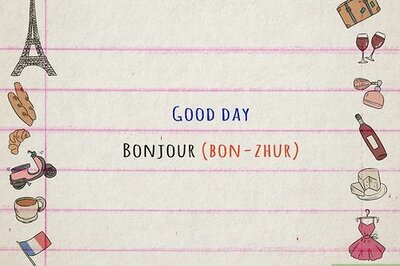 Good day
Bonjour (bon-zhur)